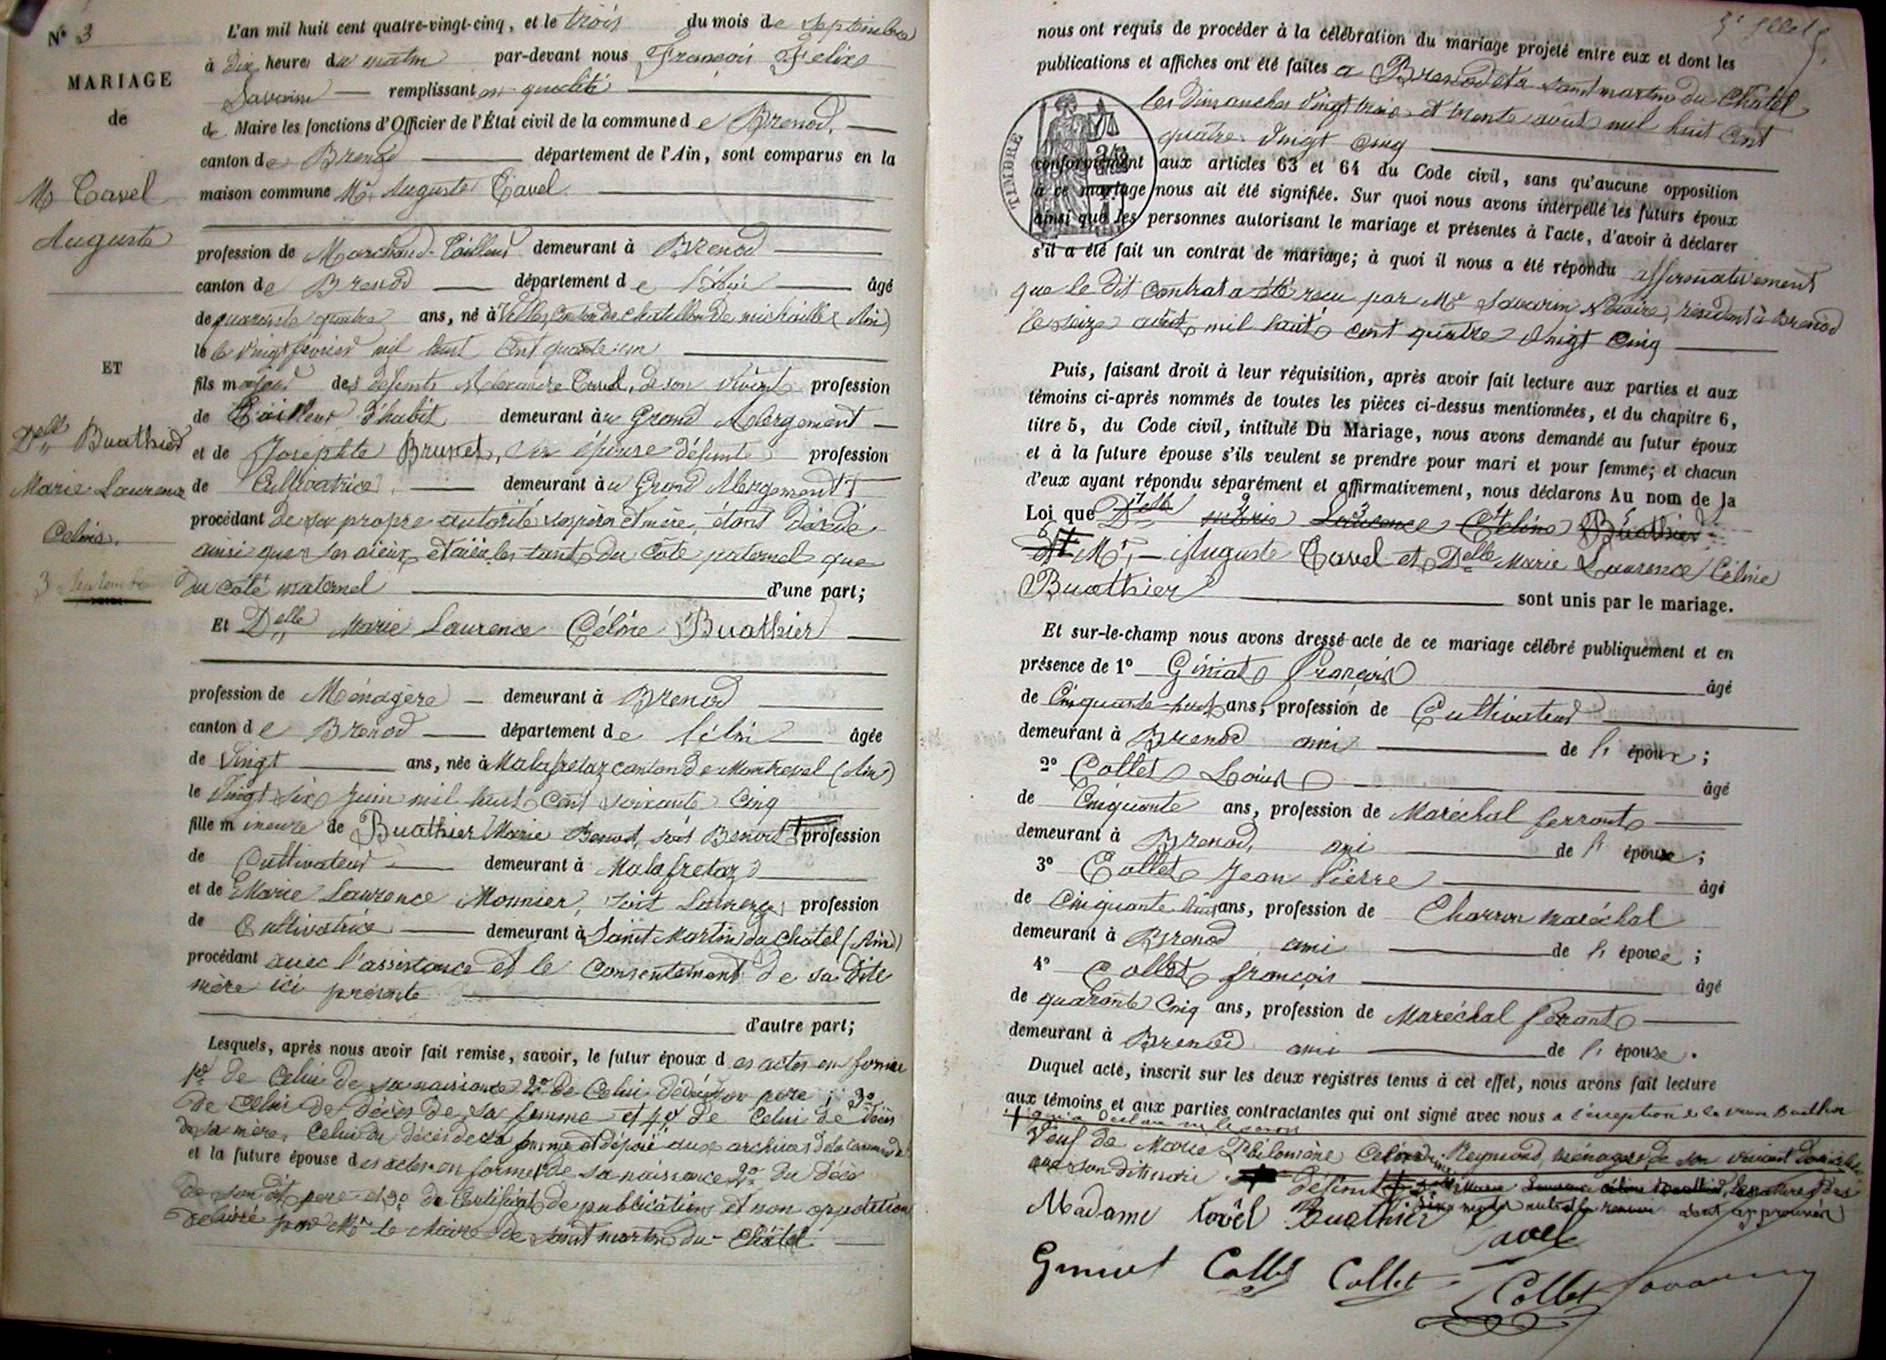 N° 3
MARIAGE
de
Mr Tavel
Auguste
ET
Delle Buathier
Marie Laurence
Celine.
3 Septembre
L'an mil huit cent quatre-vingt-cinq, et le trois du mois de Septembre
à dix heures du matin par-devant nous François Felix
Savarin remplissant en qualité
de Maire les fonctions d'Officier de l'État civil de la commune de Brenod,
canton de Brenod département de l'Ain, sont comparus en la
maison commune Mr Auguste Tavel
profession de Marchand-Tailleur demeurant à Brenod
canton de Brenod département de l'Ain âgé
de quarante quatre ans, né à Villes, Canton de Chatillon de Michaille (Ain)
le vingt février mil huit cent quarante-un
fils majeur des défunts Alexandre Tavel, de son vivant profession
de Tailleur d'habit demeurant au Grand Abergement
et de Josephte Brunet, son épouse défunte profession
de Cultivatrice demeurant au Grand Abergement
procédant de sa propre autorité, ses père et mère étant décédé
ainsi que ses aieux et aïeules tant du côté paternel que
du côté maternel d'une part;
Et Delle Marie Laurence Céline Buathier
profession de Ménagère demeurant à Brenod
canton de Brenod département de l'Ain âgée
de Vingt ans, née à Malafretaz canton de Montrevel (Ain)
le vingt six Juin mil huit cent soixante cinq
fille mineure de Buathier Marie Benoit, soit Benoit profession
de Cultivateur demeurant à Malafretaz
et de Marie Laurence Monnier, soit Laurence profession
de Cultivatrice demeurant à Saint Martin du Chatel (Ain)
procédant avec l'assistance et le consentement de sa dite
mère ici présente
d'autre part;
Lesquels, après nous avoir fait remise, savoir, le futur époux des actes en forme
1o de Celui de sa naissance 2o de Celui de décès de son père; 3o
de Celui de décès de sa femme et 4o de Celui de décès
de sa mère. Celui du décès de sa femme est déposé aux archives de la commune
et la future épouse des actes en forme 1o de sa naissance 2o du décès
de son dit père et 3o de Certificat de publications et non opposition
délivré par Mr le Maire de Saint martin du Châtel
nous ont requis de procéder à la célébration du mariage projeté entre eux et dont les
publications et affiches ont été faites à Brenod et à Saint martin du Châtel
les dimanches vingt trois et trente août mil huit cent
quatre-vingt cinq
TIMBRE
conformément aux articles 63 et 64 du Code civil, sans qu'aucune opposition
à ce mariage nous ait été signifiée. Sur quoi nous avons interpellé les futurs époux
ainsi que les personnes autorisant le mariage et présentes à l'acte, d'avoir à déclarer
s'il a été fait un contrat de mariage; à quoi il nous a été répondu affirmativement
que le dit contrat a été reçu par Me Savarin Notaire, résidant à Brenod
le seize août mil huit cent quatre vingt cinq
Puis, faisant droit à leur réquisition, après avoir fait lecture aux parties et aux
témoins ci-après nommés de toutes les pièces ci-dessus mentionnées, et du chapitre 6,
titre 5, du Code civil, intitulé Du Mariage, nous avons demandé au futur époux
et à la future épouse s'ils veulent se prendre pour mari et pour femme; et chacun
d'eux ayant répondu séparément et affirmativement, nous déclarons Au nom de la
Loi que Delle Marie Laurence Céline Buathier
et Mr, Auguste Tavel et Delle Marie Laurence Céline
Buathier sont unis par le mariage.
Et sur-le-champ nous avons dressé acte de ce mariage célébré publiquement et en
présence de 1° Géniat François âgé
de Cinquante-huit ans, profession de Cultivateur
demeurant à Brenod ami de l' époux;
2° Collet Louis âgé
de Cinquante ans, profession de Maréchal ferrant
demeurant à Brenod, ami de l' époux;
3° Collet Jean Pierre âgé
de Cinquante huit ans, profession de Charron maréchal
demeurant à Brenod ami de l' épouse;
4° Collet françois âgé
de quarante cinq ans, profession de Maréchal ferrant
demeurant à Brenod ami de l' épouse.
Duquel acte, inscrit sur les deux registres tenus à cet effet, nous avons fait lecture
aux témoins et aux parties contractantes qui ont signé avec nous à l'exception de la veuve Buathier
qui a déclaré ne le savoir
Veuf de Marie Reymond, ménagère de son vivant
avec son dit mari défunt
Madame Tavel Buathier
Tavel
Geniat Collet Collet Collet Savarin